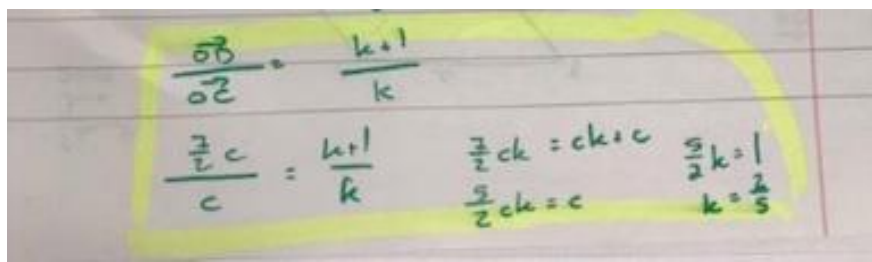 OB/OC = k+1/k
7/2 c / c = k+1/k
7/2 ck = ck + c
5/2 ck = c
5/2 k = 1
k = 2/5